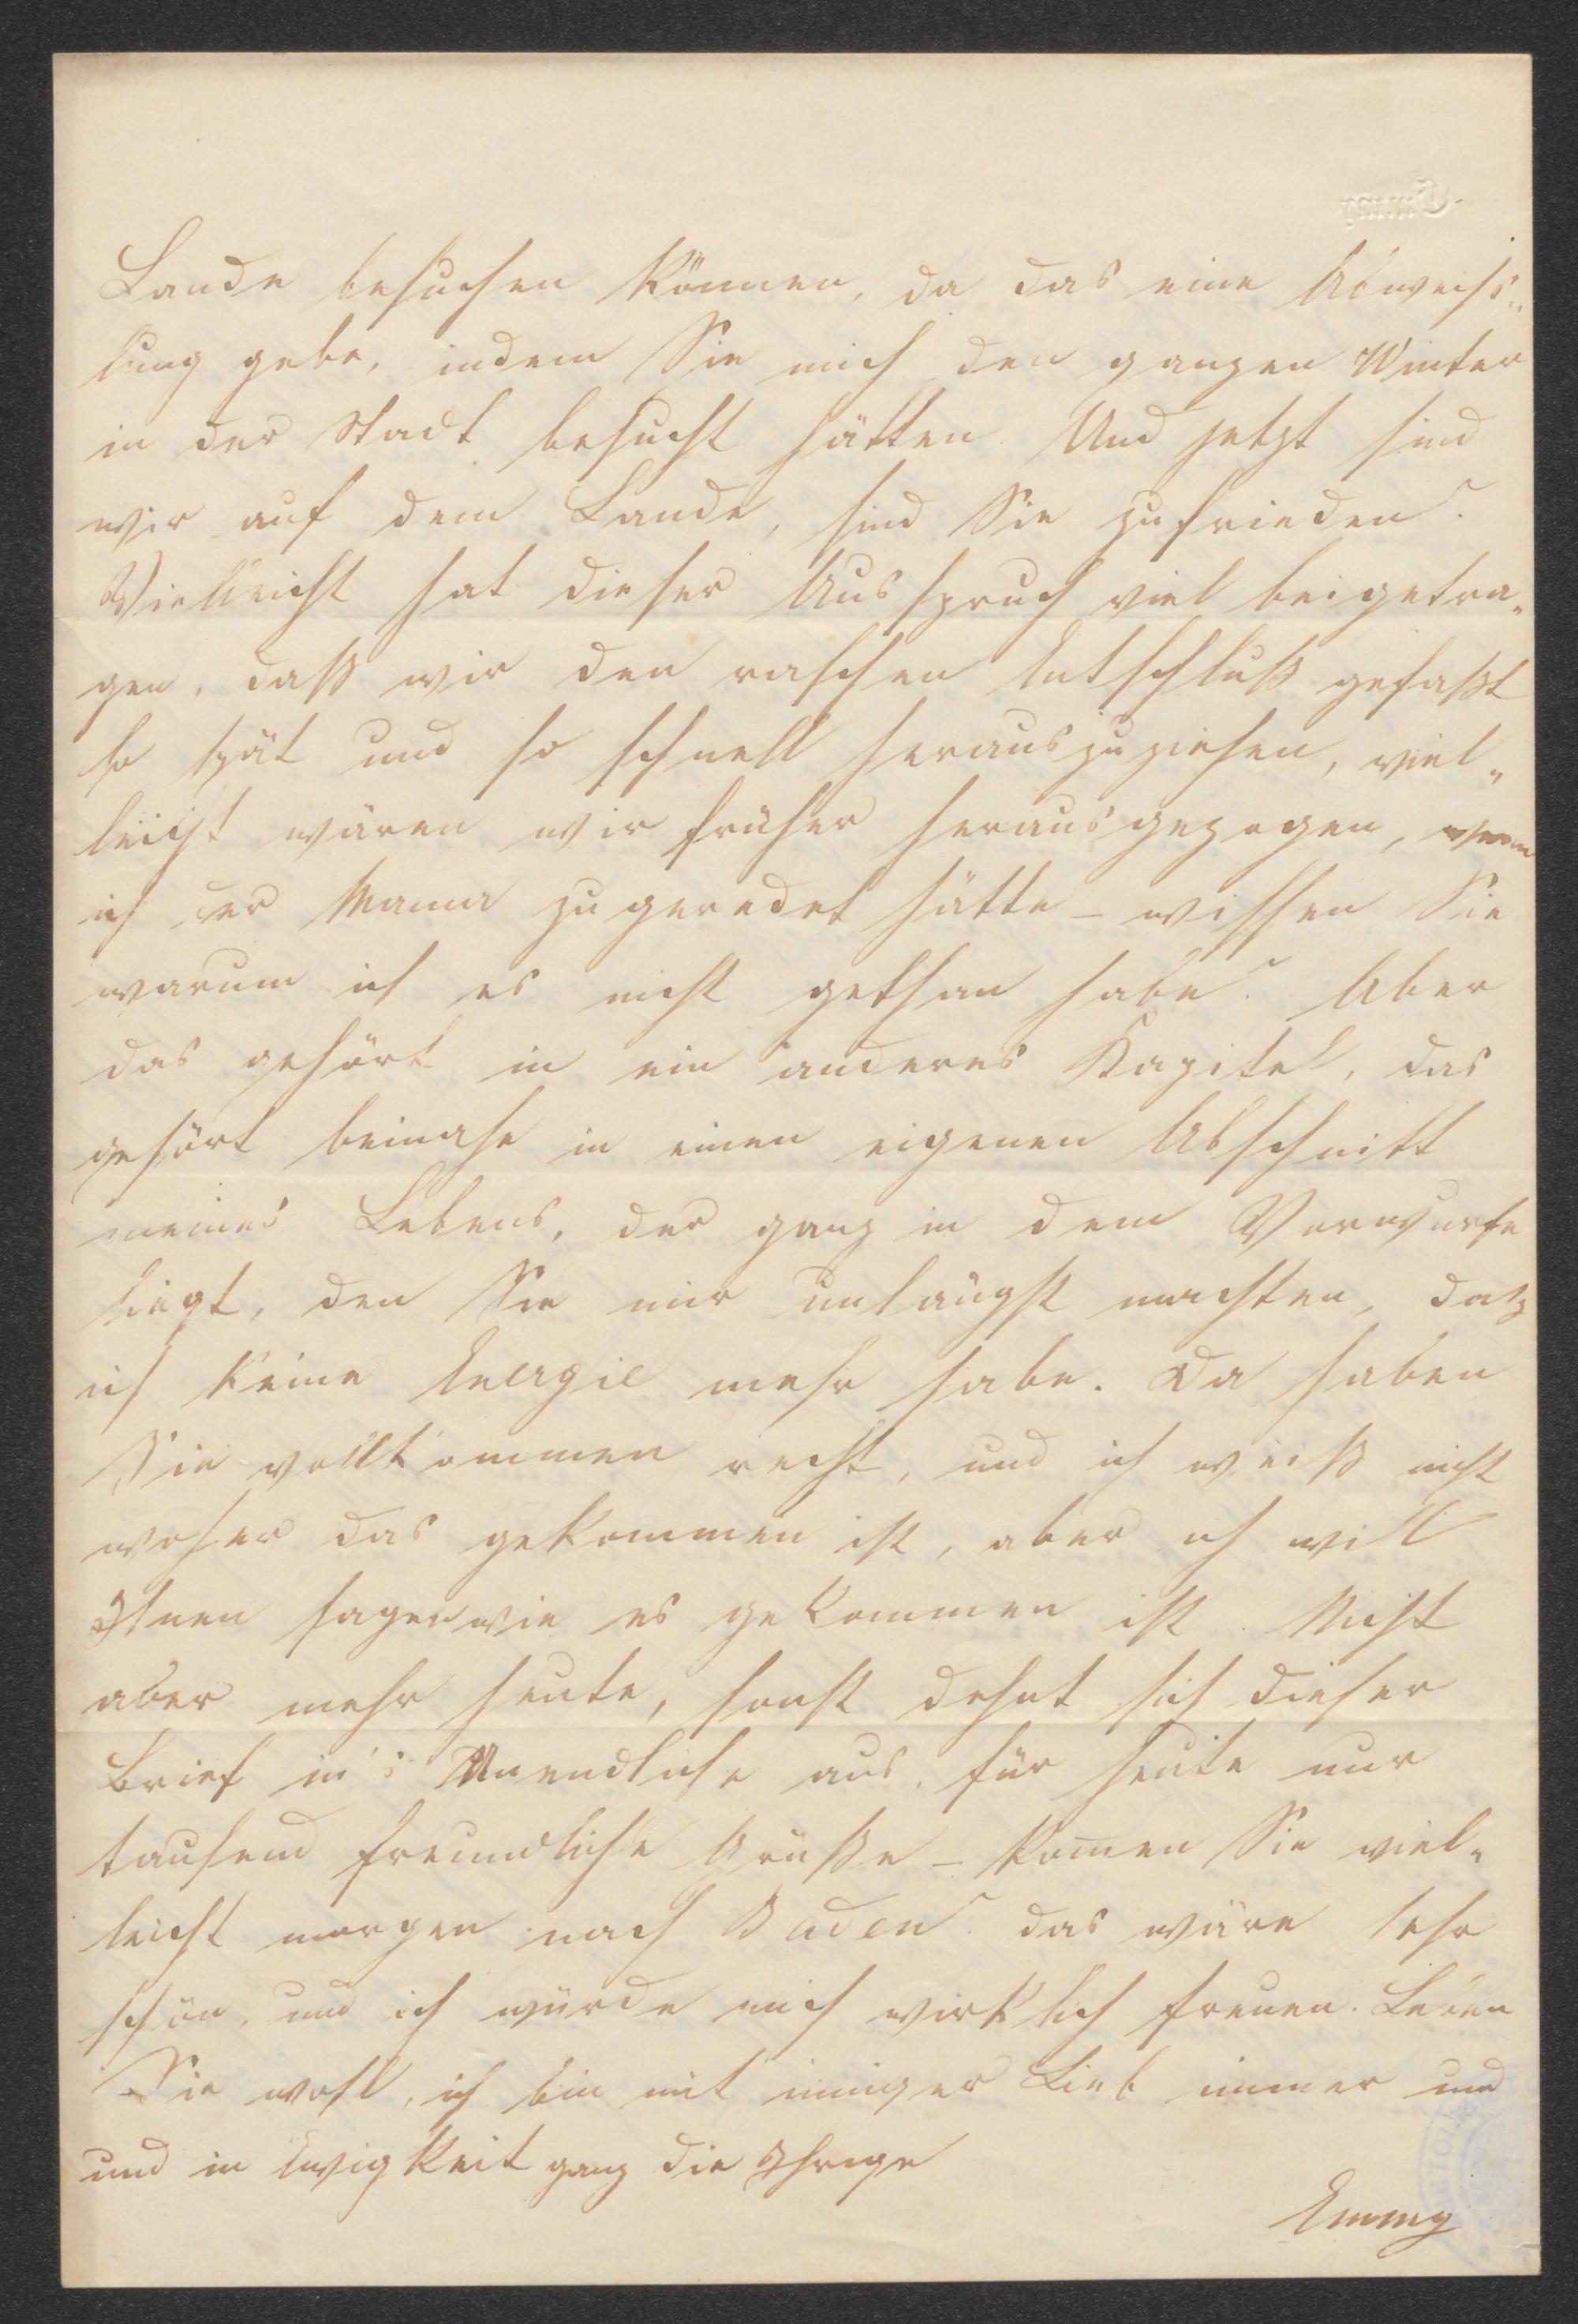 Lande besuchen können, da das eine Abwechs„
lung gebe, indem Sie mich den ganzen Winter
in der Stadt besucht hätten. Und jetzt sind
wir auf dem Lande, sind Sie zufrieden?
Vielleicht hat dieser Ausspruch viel beigetra„
gen, daß wir den raschen Entschluß gefaßt
so spät und so schnell herauszuziehen, viel„
leicht wären wir früher herausgezogen, wenn
ich der Mama zugeredet hätte – wissen Sie
warum ich es nicht gethan habe? Aber
das gehört in ein anderes Kapitel, das
gehört beinahe in einen eigenen Abschnitt
meines Lebens, der ganz in dem Vorwurfe
liegt, den Sie mir unlängst machten, daß
ich keine Energie mehr habe. Da haben
Sie vollkommen recht, und ich weiß nicht
woher das gekommen ist, aber ich will
Ihnen sagen wie es gekommen ist. Nicht
aber mehr heute, sonst dehnt sich dieser
Brief in's Unendliche aus, für heute nur
tausend freundliche Grüße – kom̄en Sie viel„
leicht morgen nach Baden? das wäre sehr
schön, und ich würde mich wirklich freuen. Leben
Sie wohl, ich bin mit inniger Lieb immer und
und in Ewigkeit ganz die Ihrige
Emmy